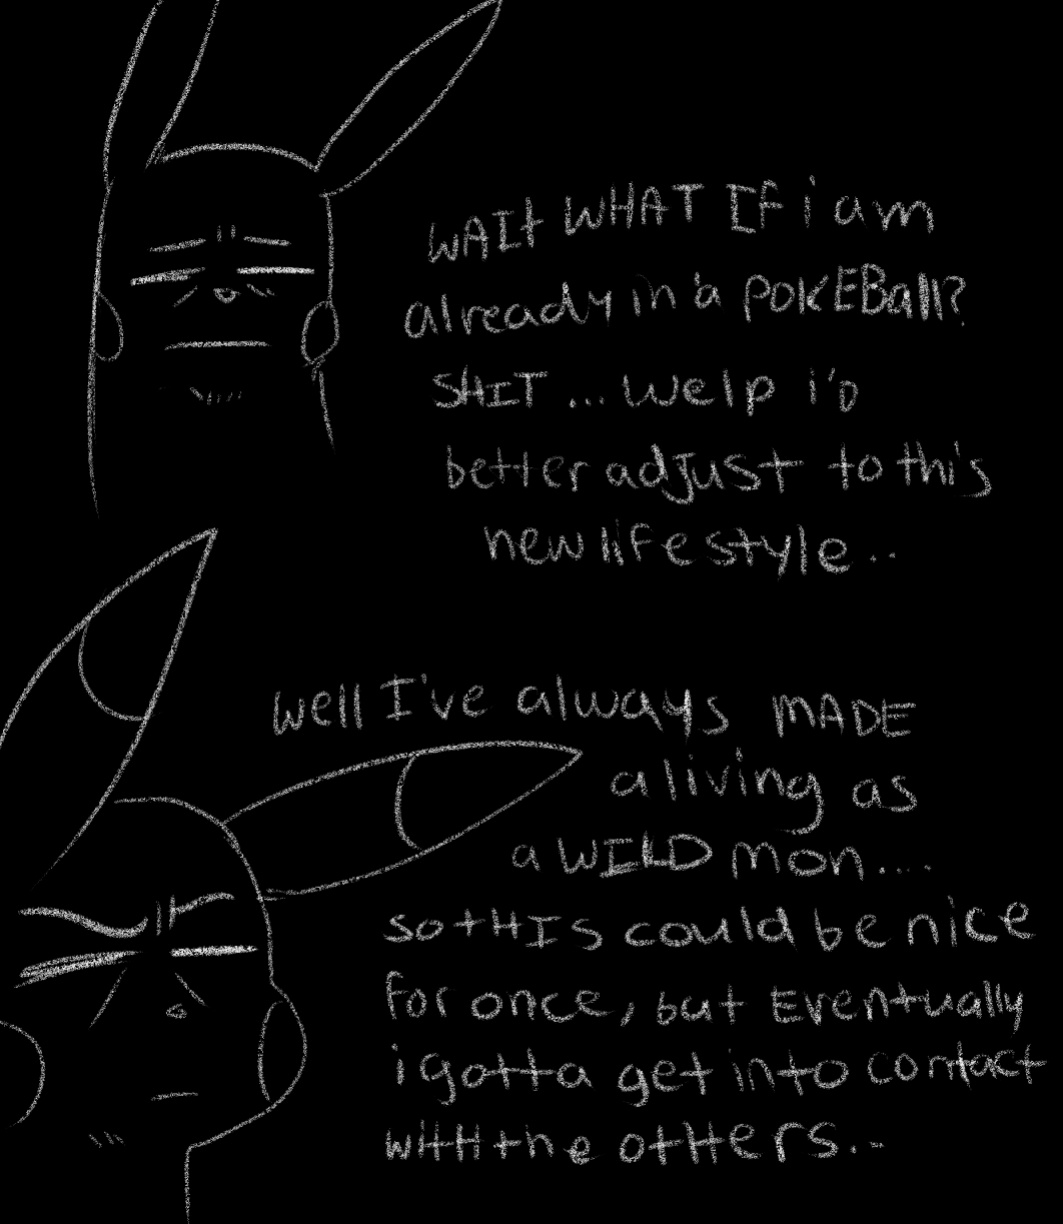 WAIt WHAT If i am
already in a POKEBall?
SHIT... welp i'D
better adjust to this
new lifestyle..
well I've always MADE
a living as
a WILD mon....
so tHIs could be nice
for once, but Eventually
i gotta get into contact
wItH the otHers...